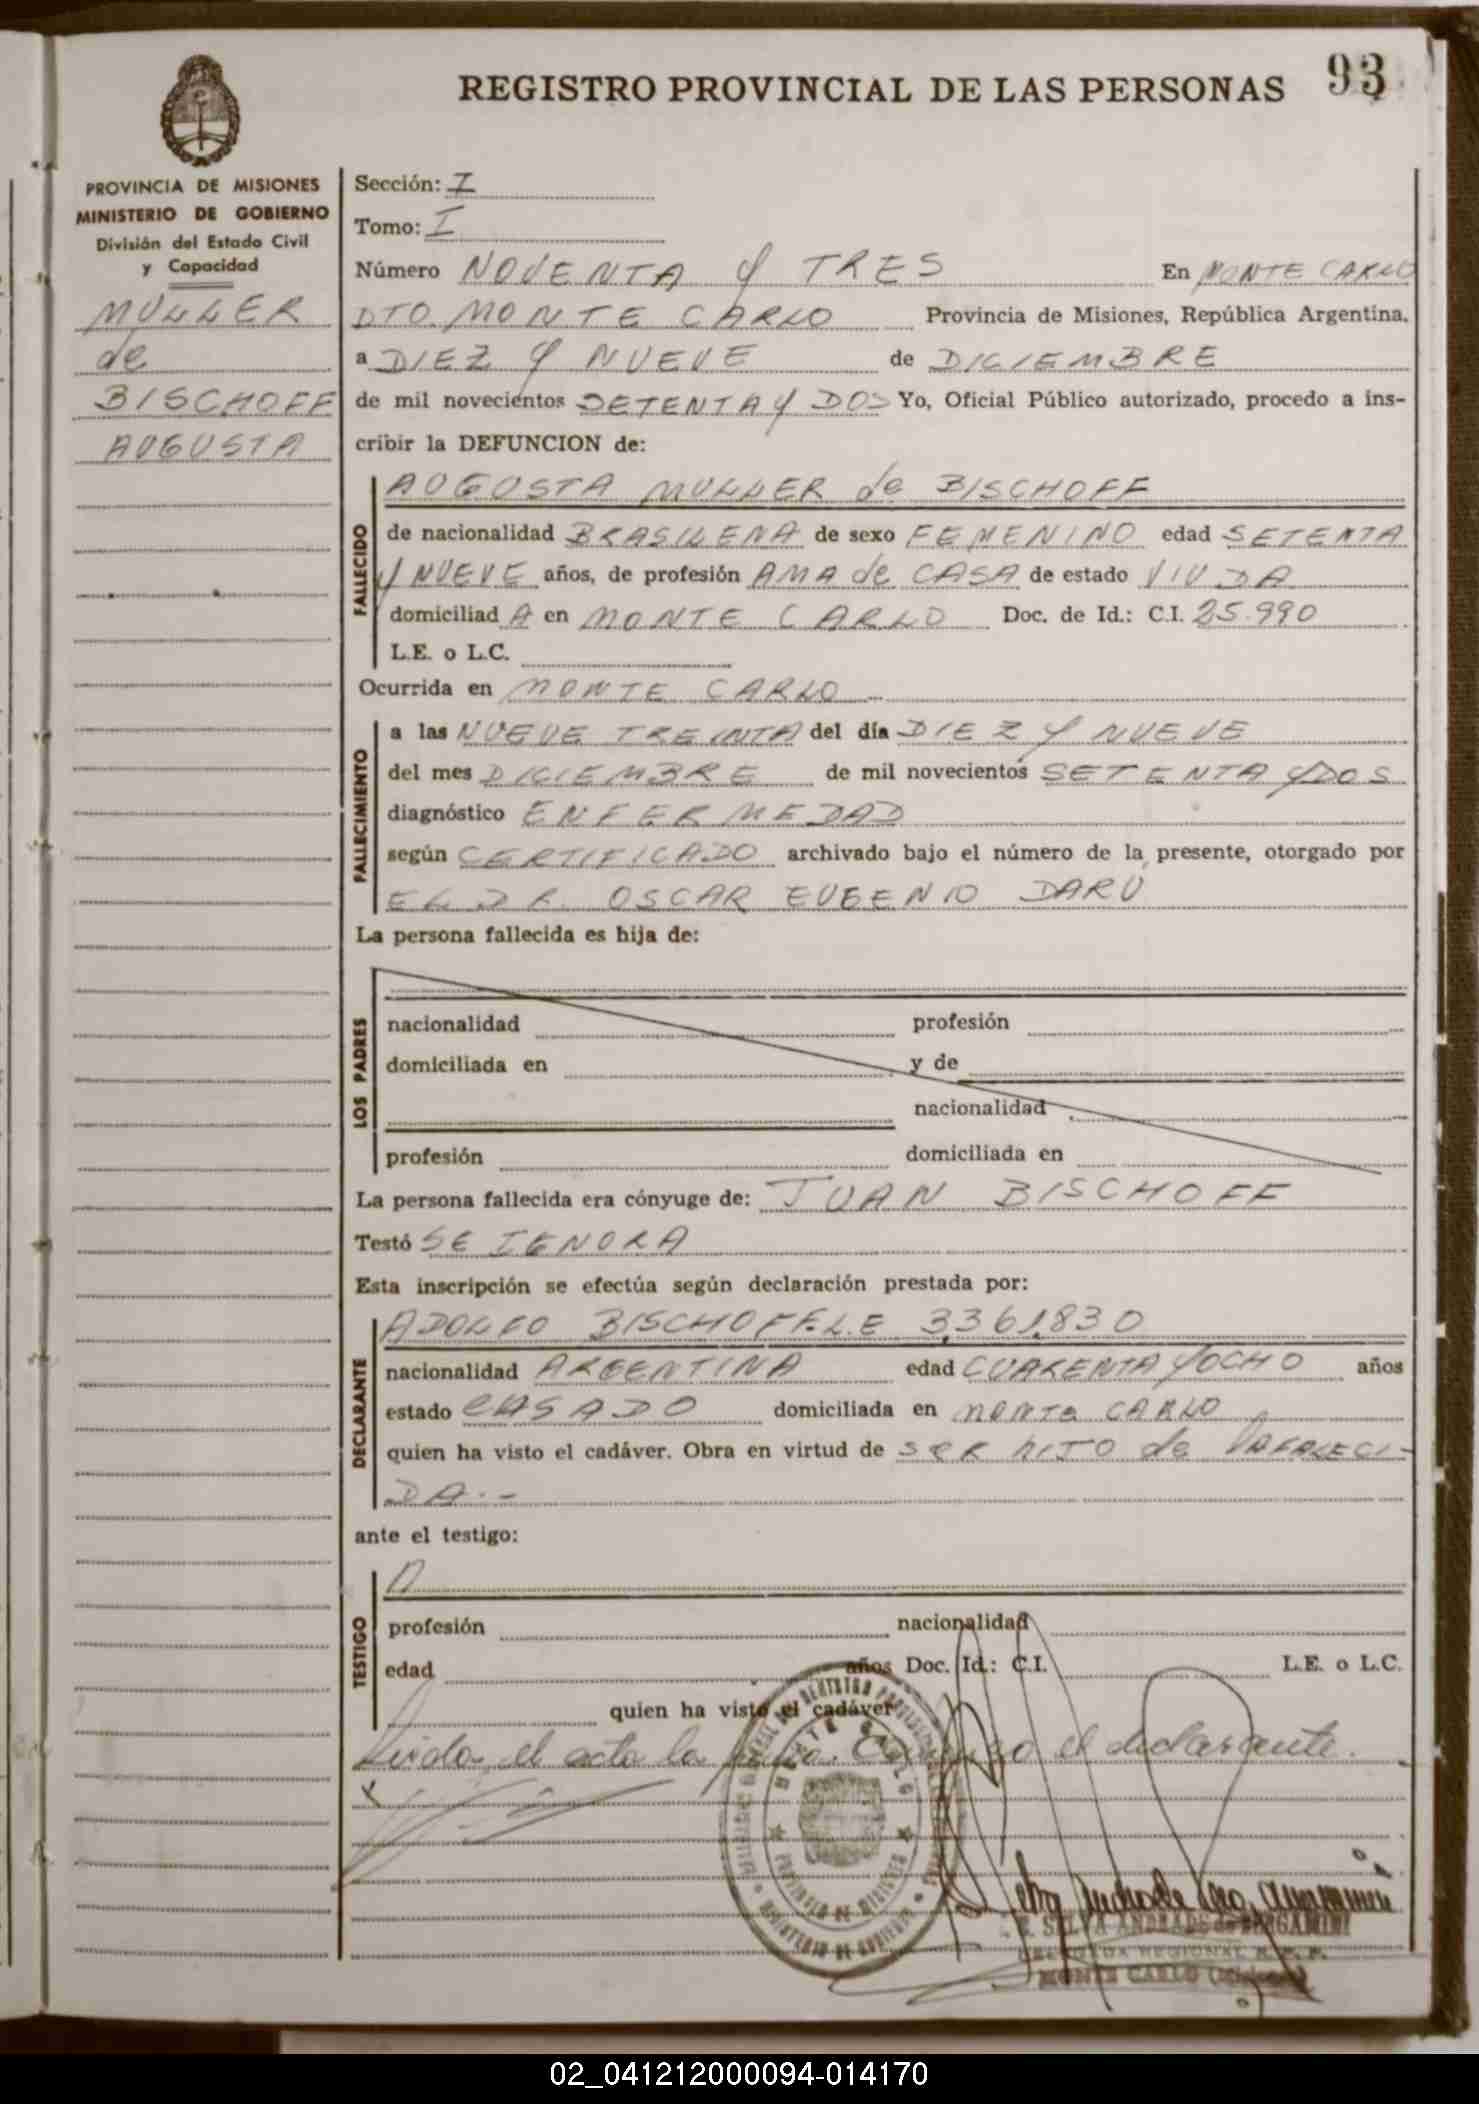 REGISTRO PROVINCIAL DE LAS PERSONAS 93
PROVINCIA DE MISIONES
MINISTERIO DE GOBIERNO
División del Estado Civil
y Capacidad
MULLER
de
BISCHOFF
AUGUSTA
Sección: I
Tomo: I
Número NOVENTA Y TRES En MONTE CARLO
DTO. MONTE CARLO Provincia de Misiones, República Argentina.
a DIEZ Y NUEVE de DICIEMBRE
de mil novecientos SETENTA Y DOS Yo, Oficial Público autorizado, procedo a ins-
cribir la DEFUNCION de:
FALLECIDO
AUGUSTA MULLER de BISCHOFF
de nacionalidad BRASILENA de sexo FEMENINO edad SETENTA
Y NUEVE años, de profesión AMA de CASA de estado VIUDA
domiciliad A en MONTE CARLO Doc. de Id.: C.I. 25.990
L.E. o L.C.
Ocurrida en MONTE CARLO
FALLECIMIENTO
a las NUEVE TREINTA del día DIEZ Y NUEVE
del mes DICIEMBRE de mil novecientos SETENTA Y DOS
diagnóstico ENFERMEDAD
según CERTIFICADO archivado bajo el número de la presente, otorgado por
EL DR. OSCAR EUGENIO DARU
La persona fallecida es hija de:
LOS PADRES
nacionalidad profesión
domiciliada en y de
nacionalidad
profesión domiciliada en
La persona fallecida era cónyuge de: JUAN BISCHOFF
Testó SE IGNORA
Esta inscripción se efectúa según declaración prestada por:
DECLARANTE
ADOLFO BISCHOFF L.E 3.361.830
nacionalidad ARGENTINA edad CUARENTA Y OCHO años
estado CASADO domiciliada en MONTE CARLO
quien ha visto el cadáver. Obra en virtud de SER HIJO de LA FALECI-
DA.-
ante el testigo:
TESTIGO
profesión nacionalidad
edad años Doc. Id.: C.I. L.E. o L.C.
quien ha visto el cadáver
Leida el acta la firma Conmigo el declarante.
X
MONTE CARLO
PROVINCIA DE MISIONES
MINISTERIO DE GOBIERNO
E. SILVA ANDRADE de BERGAMINI
MONTE CARLO (Misiones)
02_041212000094-014170